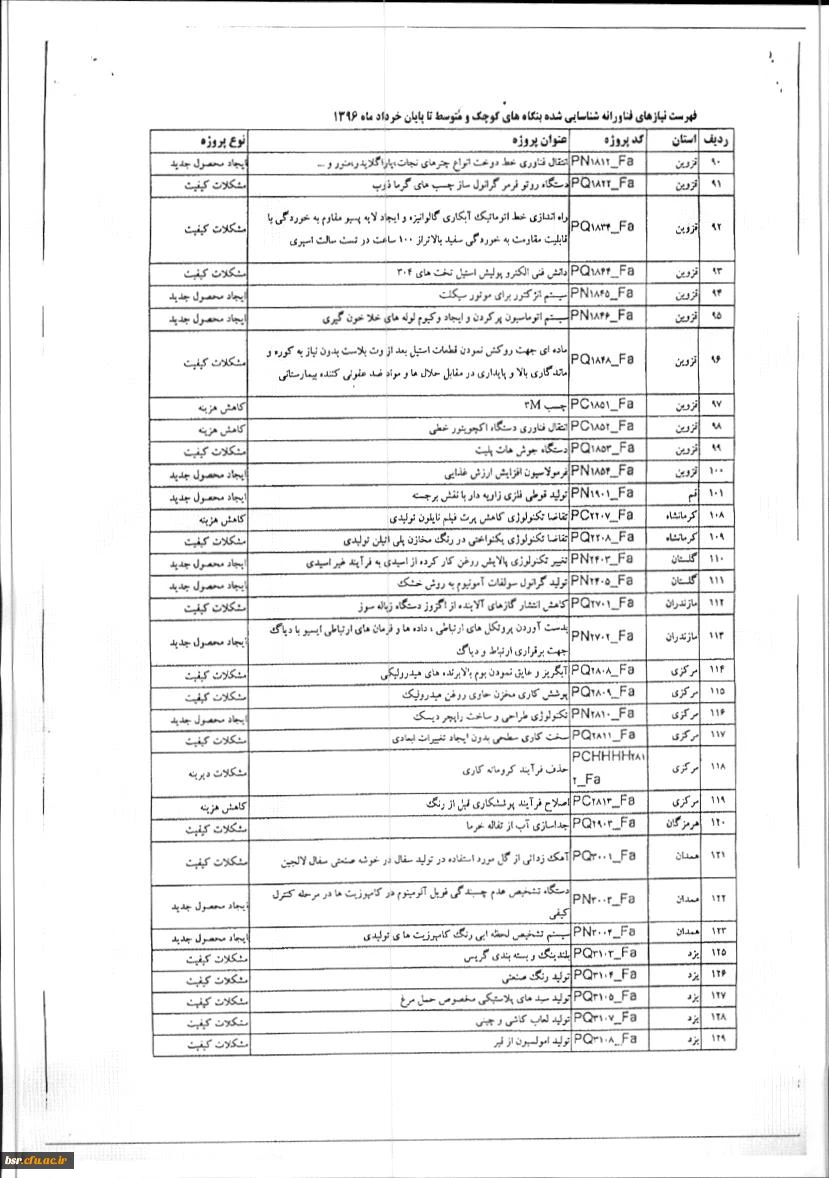 فهرست نیازهای فناورانه شناسایی شده بنگاه های کوچک و متوسط تا پایان خرداد ماه ۱۳۹۶
ردیف استان کد پروژه عنوان پروژه نوع پروژه
۹۰ قزوین PN۱۸۱۲_Fa انتقال فناوری خط دوخت انواع چترهای نجات،پاراگلایدر،منور و ... ایجاد محصول جدید
۹۱ قزوین PQ۱۸۲۲_Fa دستگاه روتو فرمر گرانول ساز چسب های گرما ذوب مشکلات کیفیت
۹۲ قزوین PQ۱۸۳۴_Fa راه اندازی خط اتوماتیک آبکاری گالوانیزه و ایجاد لایه پسیو مقاوم به خوردگی با
قابلیت مقاومت به خوردگی سفید بالاتراز ۱۰۰ ساعت در تست سالت اسپری مشکلات کیفیت
۹۳ قزوین PQ۱۸۴۴_Fa دانش فنی الکترو پولیش استیل تخت های ۳۰۴ مشکلات کیفیت
۹۴ قزوین PN۱۸۴۵_Fa سیستم انژکتور برای موتور سیکلت ایجاد محصول جدید
۹۵ قزوین PN۱۸۴۶_Fa سیستم اتوماسیون پرکردن و ایجاد وکیوم لوله های خلا خون گیری ایجاد محصول جدید
۹۶ قزوین PQ۱۸۴۸_Fa ماده ای جهت روکش نمودن قطعات استیل بعد از وت بلاست بدون نیاز به کوره و
ماندگاری بالا و پایداری در مقابل حلال ها و مواد ضد عفونی کننده بیمارستانی مشکلات کیفیت
۹۷ قزوین PC۱۸۵۱_Fa چسب ۳M کاهش هزینه
۹۸ قزوین PC۱۸۵۲_Fa انتقال فناوری دستگاه اکچویتور خطی کاهش هزینه
۹۹ قزوین PQ۱۸۵۳_Fa دستگاه جوش هات پلیت مشکلات کیفیت
۱۰۰ قزوین PN۱۸۵۴_Fa فرمولاسیون افزایش ارزش غذایی ایجاد محصول جدید
۱۰۱ قم PN۱۹۰۱_Fa تولید قوطی فلزی زاویه دار با نقش برجسته ایجاد محصول جدید
۱۰۸ کرمانشاه PC۲۲۰۷_Fa تقاضا تکنولوژی کاهش پرت فیلم نایلون تولیدی کاهش هزینه
۱۰۹ کرمانشاه PQ۲۲۰۸_Fa تقاضا تکنولوژی یکنواختی در رنگ مخازن پلی اتیلن تولیدی مشکلات کیفیت
۱۱۰ گلستان PN۲۴۰۳_Fa تغییر تکنولوژی پالایش روغن کار کرده از اسیدی به فرآیند غیر اسیدی ایجاد محصول جدید
۱۱۱ گلستان PN۲۴۰۵_Fa تولید گرانول سولفات آمونیوم به روش خشک ایجاد محصول جدید
۱۱۲ مازندران PQ۲۷۰۱_Fa کاهش انتشار گازهای آلاینده از اگزوز دستگاه زباله سوز مشکلات کیفیت
۱۱۳ مازندران PN۲۷۰۲_Fa بدست آوردن پروتکل های ارتباطی ، داده ها و فرمان های ارتباطی ایسیو با دیاگ
جهت برقراری ارتباط و دیاگ ایجاد محصول جدید
۱۱۴ مرکزی PQ۲۸۰۸_Fa آبگریز و عایق نمودن بوم بالابرنده های هیدرولیکی مشکلات کیفیت
۱۱۵ مرکزی PQ۲۸۰۹_Fa پوشش کاری مخزن حاوی روغن هیدرولیک مشکلات کیفیت
۱۱۶ مرکزی PN۲۸۱۰_Fa تکنولوژی طراحی و ساخت راپچر دیسک ایجاد محصول جدید
۱۱۷ مرکزی PQ۲۸۱۱_Fa سخت کاری سطحی بدون ایجاد تغییرات ابعادی مشکلات کیفیت
۱۱۸ مرکزی PCHHHH۲۸۱
۲_Fa حذف فرآیند کروماته کاری مشکلات دیرینه
۱۱۹ مرکزی PC۲۸۱۳_Fa اصلاح فرآیند پوششکاری قبل از رنگ کاهش هزینه
۱۲۰ هرمزگان PQ۲۹۰۳_Fa جداسازی آب از تفاله خرما مشکلات کیفیت
۱۲۱ همدان PQ۳۰۰۱_Fa آهک زدائی از گل مورد استفاده در تولید سفال در خوشه صنعتی سفال لالجین مشکلات کیفیت
۱۲۲ همدان PN۳۰۰۳_Fa دستگاه تشخیص عدم چسبندگی فویل آلومینوم در کامپوزیت ها در مرحله کنترل
کیفی ایجاد محصول جدید
۱۲۳ همدان PN۳۰۰۴_Fa سیستم تشخیص لحظه ایی رنگ کامپوزیت های تولیدی ایجاد محصول جدید
۱۲۵ یزد PQ۳۱۰۳_Fa بلندینگ و بسته بندی گریس مشکلات کیفیت
۱۲۶ یزد PQ۳۱۰۴_Fa تولید رنگ صنعتی مشکلات کیفیت
۱۲۷ یزد PQ۳۱۰۵_Fa تولید سبد های پلاستیکی مخصوص حمل مرغ مشکلات کیفیت
۱۲۸ یزد PQ۳۱۰۷_Fa تولید لعاب کاشی و چینی مشکلات کیفیت
۱۲۹ یزد PQ۳۱۰۸_Fa تولید امولسیون از قیر مشکلات کیفیت
bsr.cfu.ac.ir